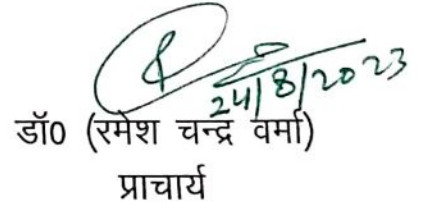 24/8/2023
डॉ0 (रमेश चन्द्र वर्मा)
प्राचार्य